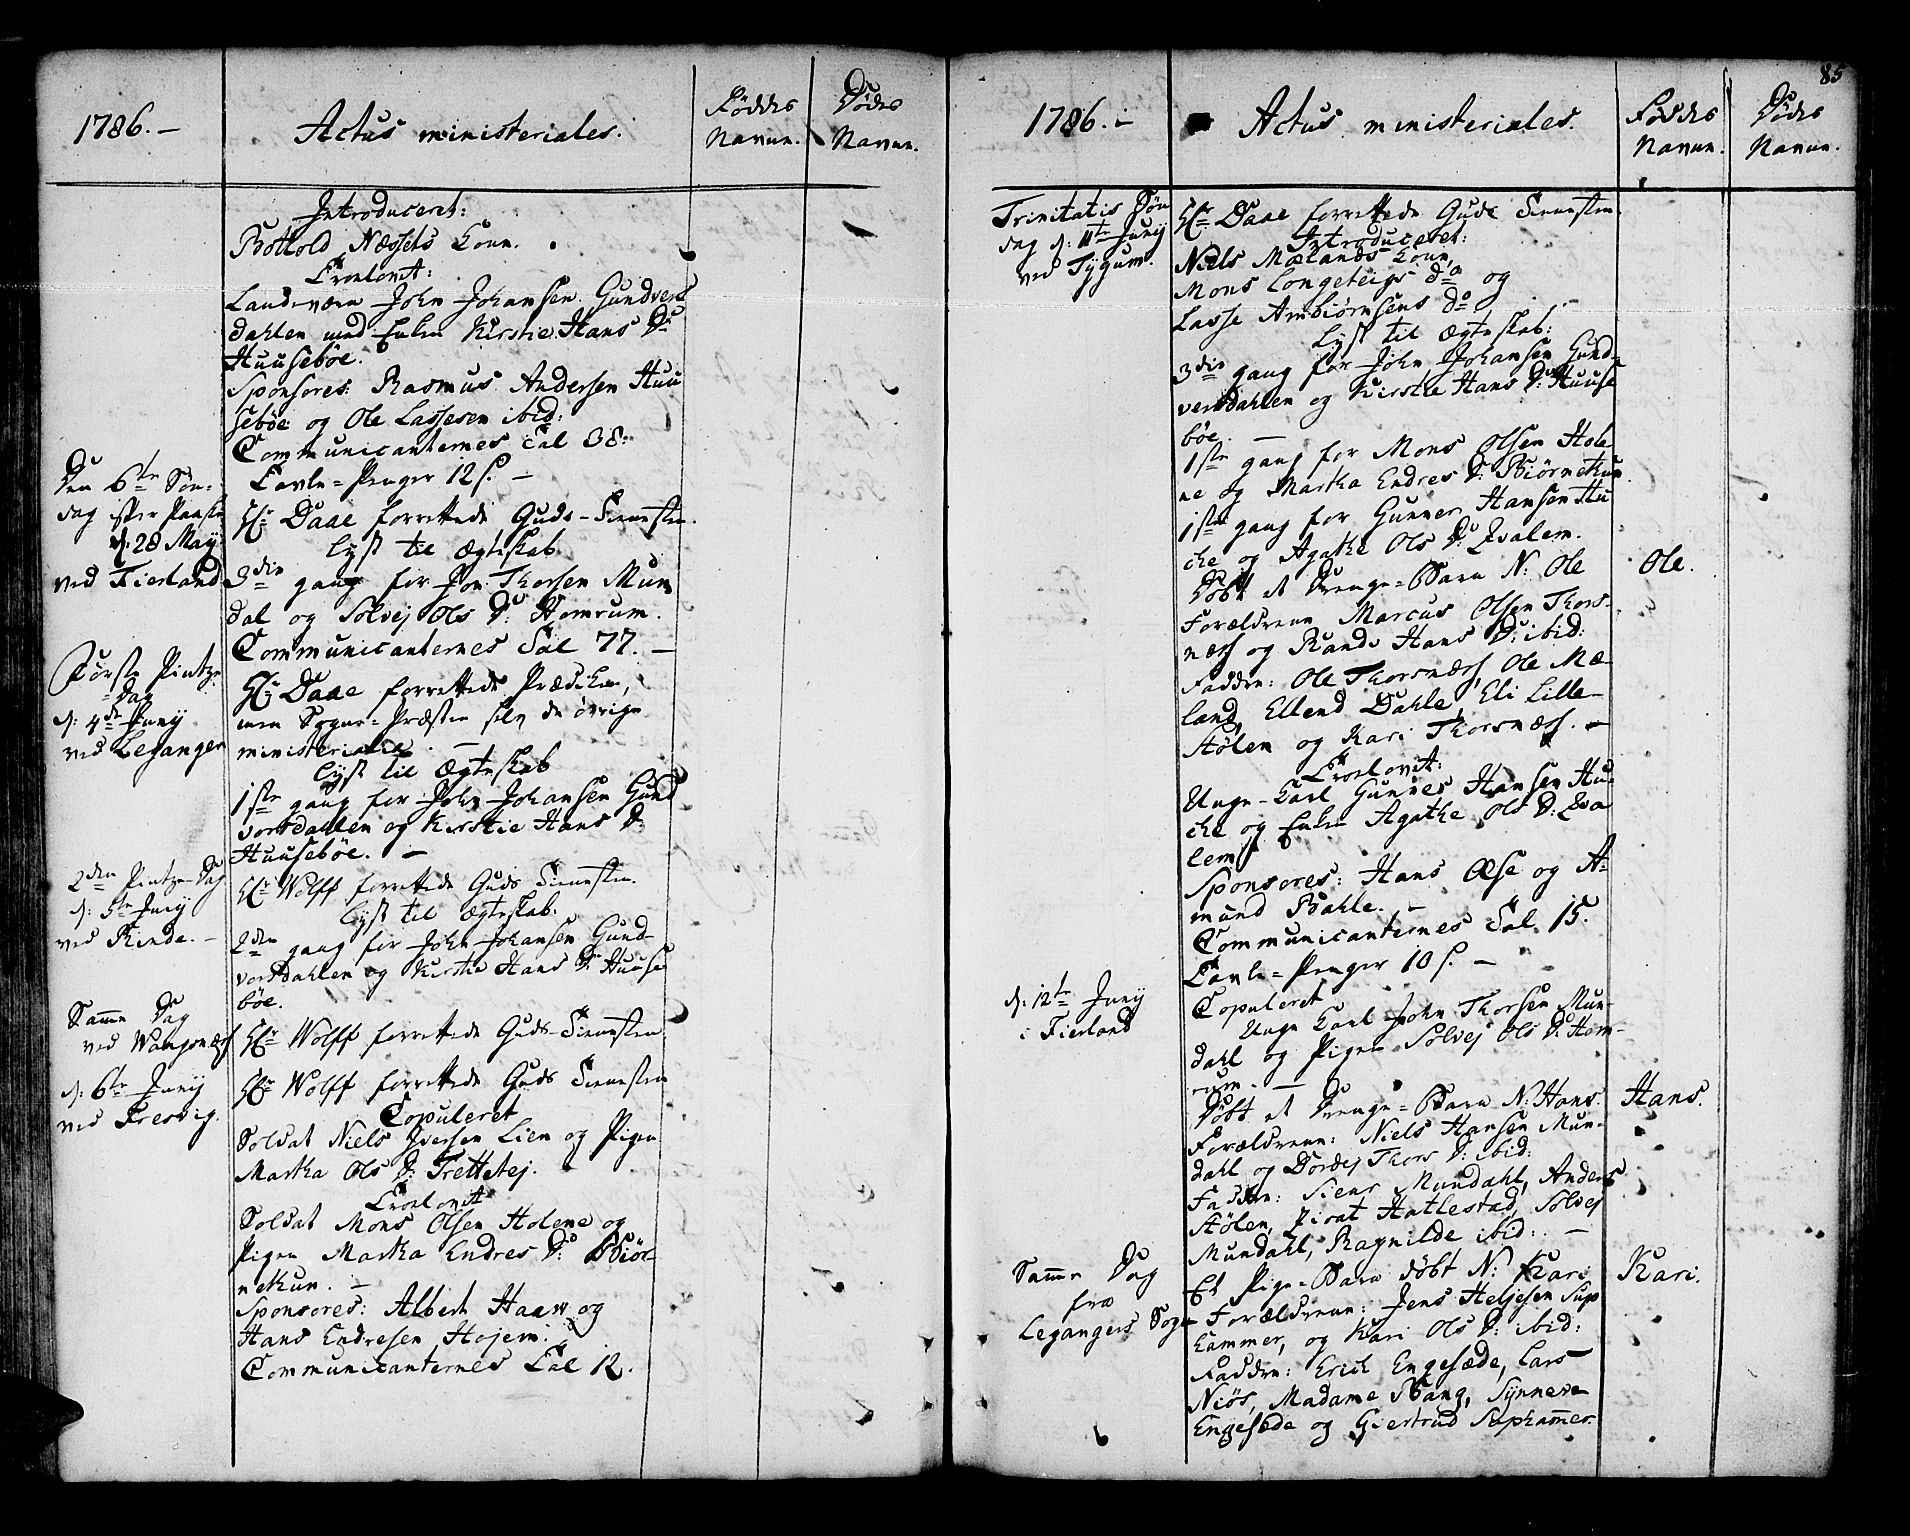 1786.—
Actus ministeriales.
Føddes
Navne.
Dødes
Navne.
Introduceret:
Bottold Næssets Kone.
Troelovet:
Landeværn John Johansen Gundvers
dahlen med Enken Kirstie Hans D:
Huusebøe.
Sponsores: Rasmus Andersen Huu
sebøe og Ole Lassesen ibid:
Communicanternes Tal 38:
Tavle-Penger 12 s. —
Den 6te Søn-
dag efter Paaske
d: 28 May
ved Fierland
Hr Daae forrettede Guds-Tienesten.
Lyst til Ægteskab
3die gang for Jon Thorsen Mun
dal og Solvej Ols D: Homrum.
Communicanternes Tal 77. —
Første Pintze
-Dag
d: 4de Junij
ved Leganger
Hr Daae forrettede Prædiken,
men Sogne-Præsten selv de øvrige
ministerialia. —
Lyst til Ægteskab
1ste gang for John Johansen Gund
versdahlen og Kirstie Hans D:
Huusebøe. —
2den Pintze-Dag
d: 5te Junij
ved Rinde. —
Hr Wolff forrettede Guds Tienesten.
Lyst til Ægteskab:
2den gang for John Johansen Gund-
versdahlen og Kirstie Hans D: Huuse
bøe.
Samme Dag
ved Wangsnæss
Hr Wolff forrettede Guds-Tienesten.
d: 6te Junij
ved Fresvig.
Hr Wolff forrettede Guds Tienesten
Copuleret
Soldat Niels Iversen Lien og Pigen
Martha Ols D: Trettetej.
Troelovet
Soldat Mons Olsen Holene og
Pigen Martha Endres D: Biør
nethun. —
Sponsores: Albert Haaw og
Hans Endresen Hojem:
Communicanternes Tal 12.
85
1786.—
Actus ministeriales.
Føddes
Navne.
Dødes
Navne.
Trinitatis Søn
dag d: 11te Junij
ved Tygum.
Hr Daae forrettede Guds Tienesten
Introduceret:
Niels Mælands Kone,
Mons Longeteigs do og
Lasse Ambiørnsens do
Lyst til Ægteskab:
3die gang for John Johansen Gund-
versdahlen og Kirstie Hans D: Huuse
bøe. —
1ste gang for Mons Olsen Hole
ne og Martha Endres D: Biørnethun.
1ste gang for Gunner Hansen Hu
che og Agathe Ols D: Qvalem.
Døbt et Drenge-Barn N: Ole
Ole.
Forældrene Marcus Olsen Thors-
næss og Randi Hans D: ibid:
Faddre: Ole Thorsnæss, Ole Mæ-
land, Ellend Dahle, Eli Lille-
Stølen og Kari Thorsnæss. —
Troelovet:
Unge-Karl Gunner Hansen Hu-
che og Enken Agathe Ols D: Qva
lem
Sponsores: Hans Ese og A-
mund Bahle. —
Communicanternes Tal 15.
Tavle-Penger 10 s. —
d: 12te Junij
i Fierland
Copuleret
Unge Karl John Thorsen Mun-
dahl og Pigen Solvej Ols D: Hom-
rum. —
Døbt et Drenge-Barn N: Hans.
Hans.
Forældrene: Niels Hansen Mun-
dahl og Dordej Thors D: ibid:
Faddre: Siens Mundahl, Anders
Stølen, Hatlestad, Solvej
Mundahl, Ragnilde ibid: —
Samme Dag
fra
Legangers Sogn
Et Pige-Barn døbt N: Kari
Kari.
Forældrene: Jens Heljesen Sup
hammer, og Kari Ols D: ibid:
Faddre: Erich Engesæde, Lars
Niøs, Madame Bang, Synneve
Engesæde og Giertrud Suphamer.